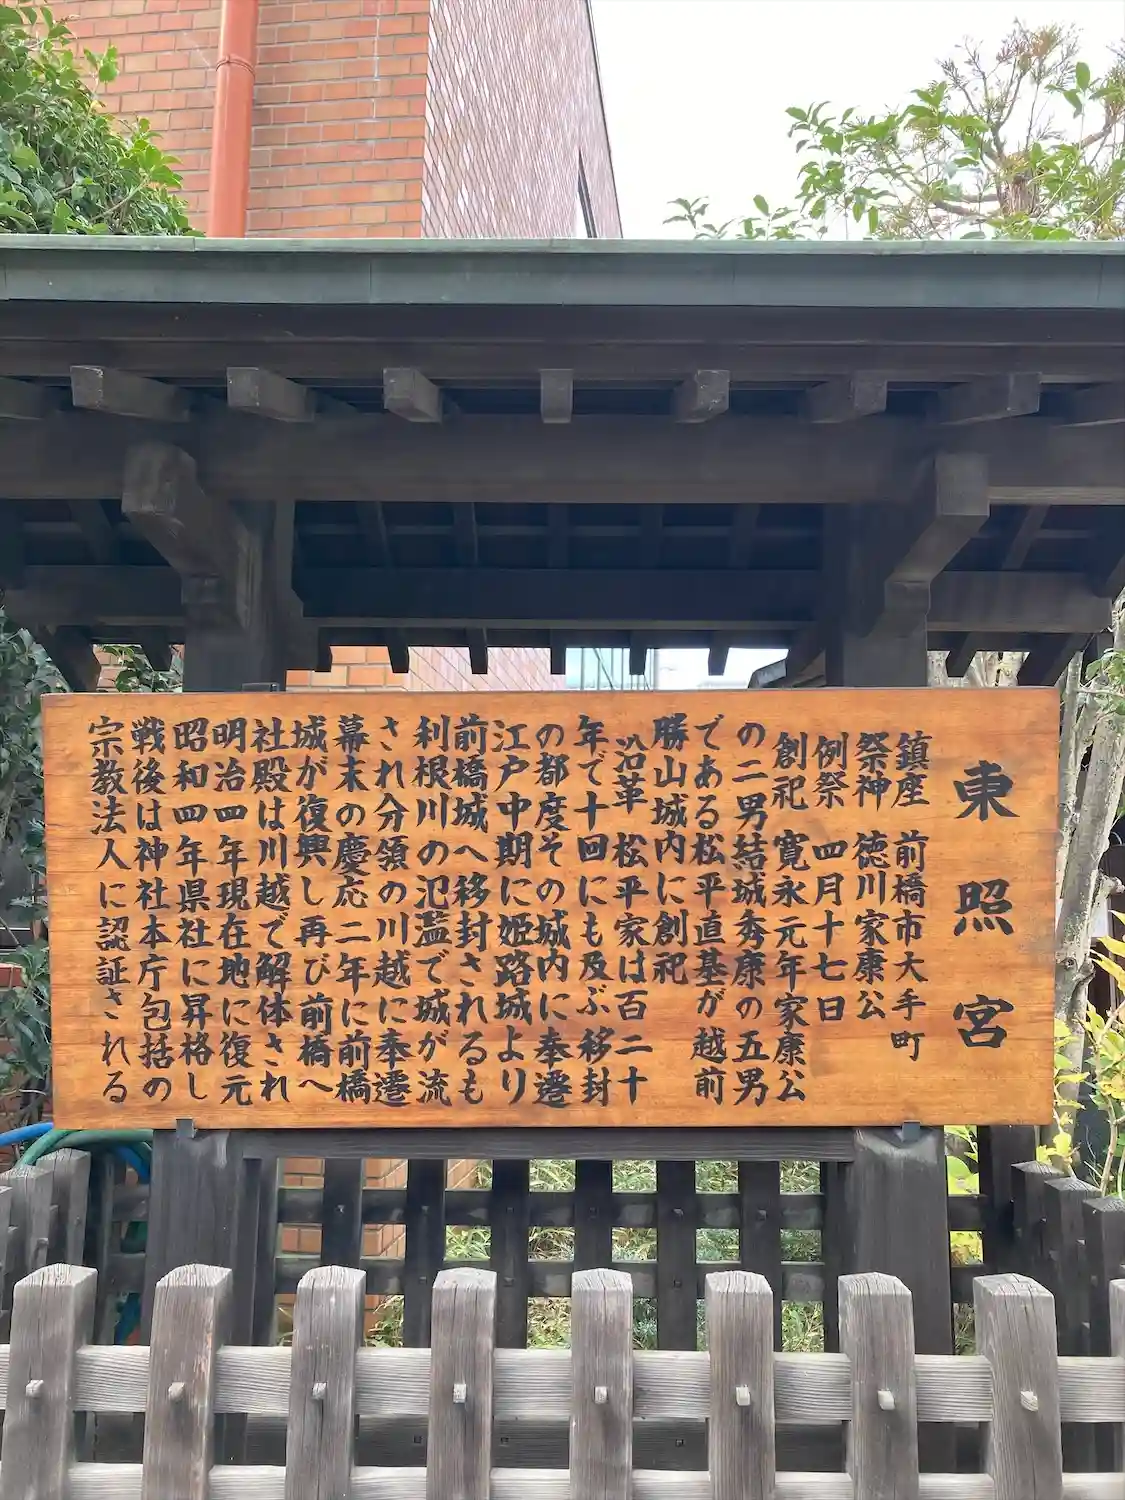 東照宮
鎮座 前橋市大手町
祭神 徳川家康公
例祭 四月十七日
創祀 寛永元年家康公
の二男結城秀康の五男
である松平直基が越前
勝山城内に創祀
沿革 松平家は百二十
年で十回にも及ぶ移封
の都度その城内に奉遷
江戸中期に姫路城より
前橋城へ移封されるも
利根川の氾濫で城が流
され分領の川越に奉遷
幕末の慶応二年に前橋
城が復興し再び前橋へ
社殿は川越で解体され
明治四年現在地に復元
昭和四年県社に昇格し
戦後は神社本庁包括の
宗教法人に認証される